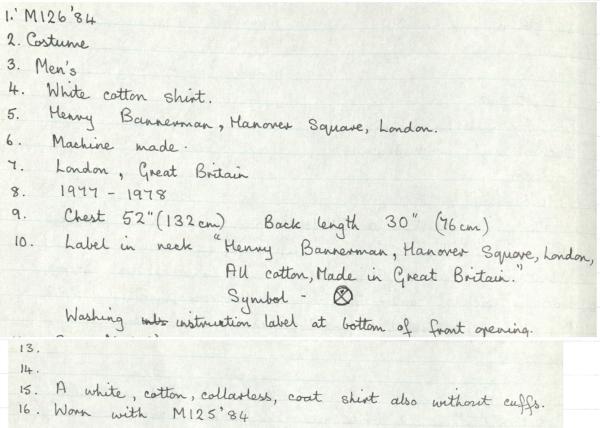 1. M126'84
2. Costume
3. Men's
4. White cotton shirt.
5. Henry Bannerman, Hanover Square, London.
6. Machine made.
7. London, Great Britain
8. 1977 - 1978
9. Chest 52" (132cm) Back length 30" (76cm)
10. Label in neck "Henry Bannerman, Hanover Square, London,
All cotton, Made in Great Britain."
Symbol - ⊗
Washing instruction label at bottom of front opening.
13.
14.
15. A white, cotton, collarless, coat shirt also without cuffs.
16. Worn with M125'84